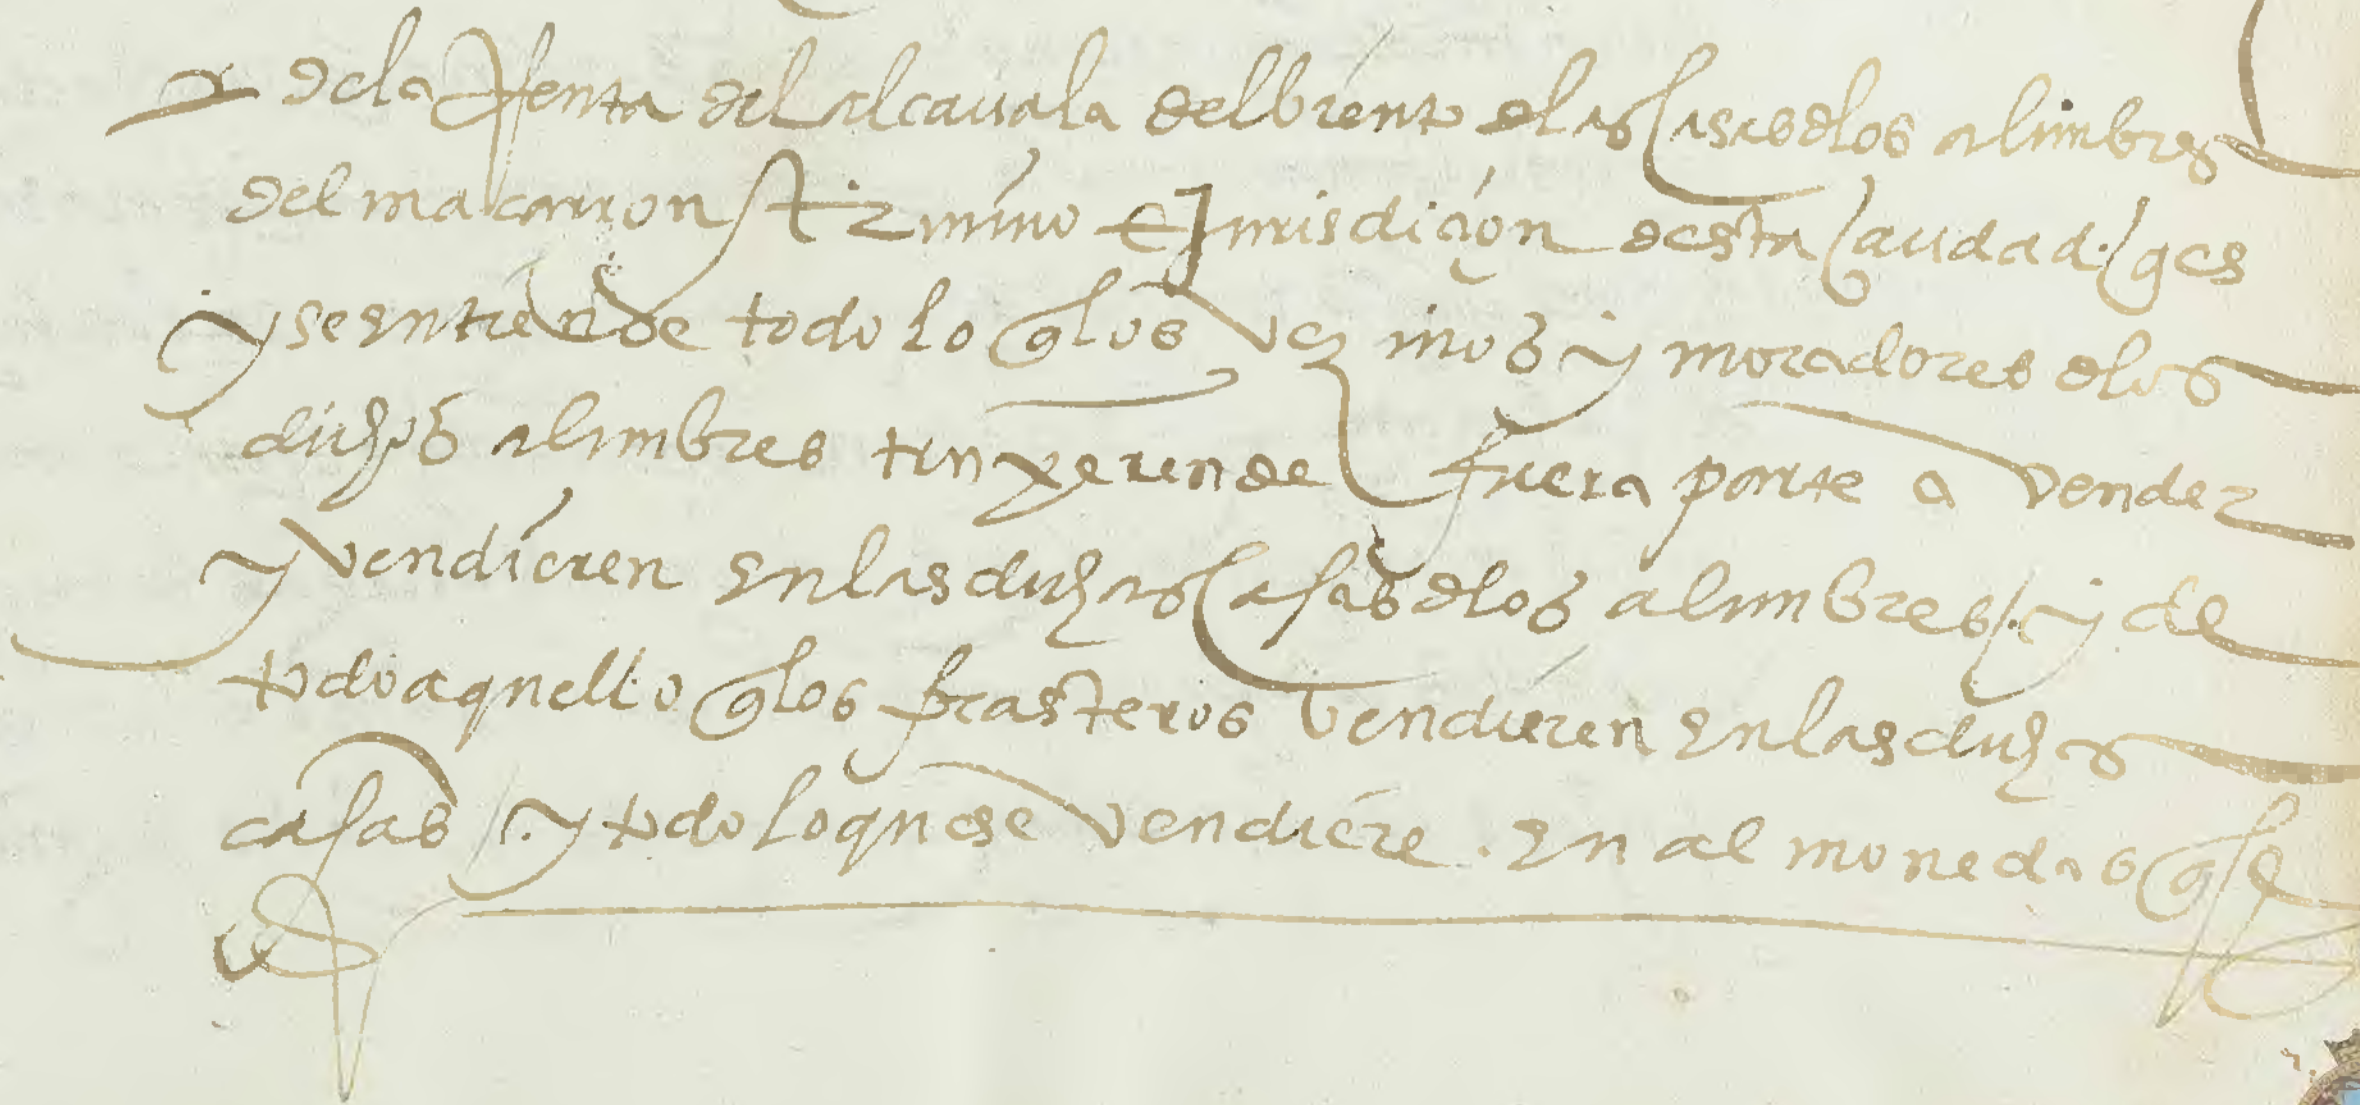 de la Renta del alcauala del viento de las casas de los alunbres
del macarron termino E Jurisdiçion desta çiudad. ques
y se entiende todo lo que los vezinos y moradores de los
dichos alumbres truxeren de fuera parte a vender
y vendieren en las dichas casas de los alumbres / . y de
todo aquello que los forasteros vendieren en las dichas
casas / . y todo lo que se vendiere . en almonedas que se